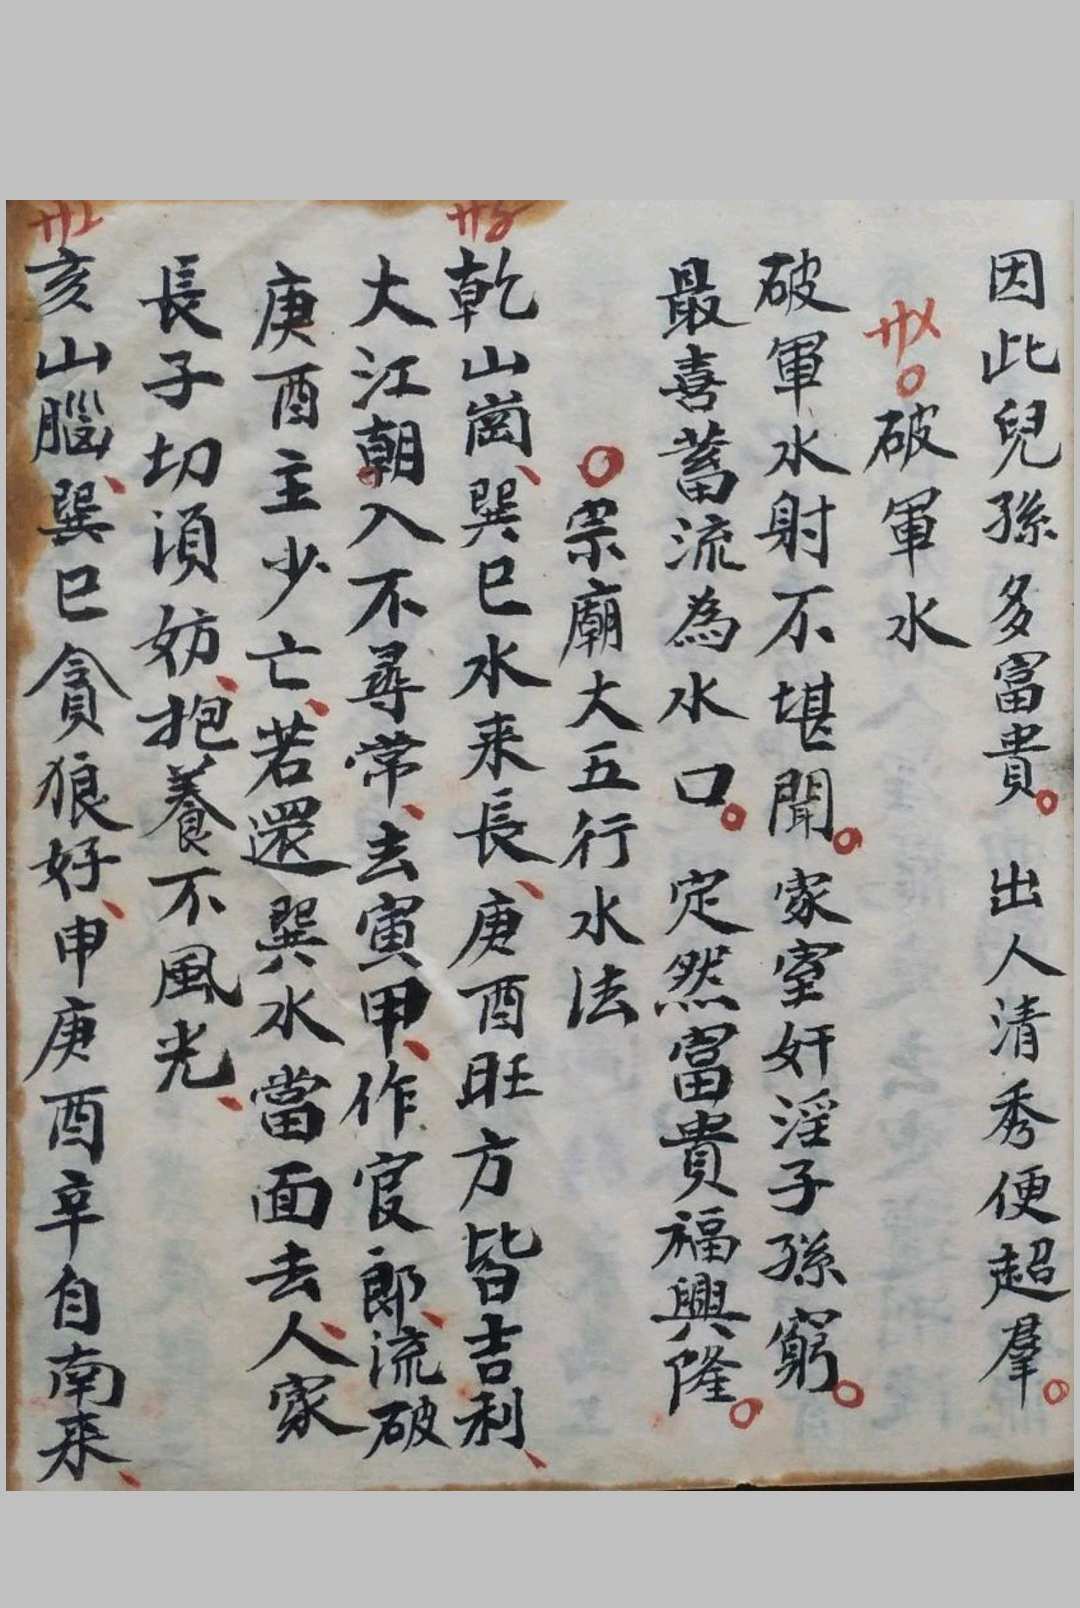 因此兒孫多富貴。出人清秀便超羣。
破軍水
破軍水射不堪聞。家室奸淫子孫窮。
最喜蓄流為水口。定然富貴福興隆。
宗廟大五行水法
乾山崗、巽巳水来長、庚酉旺方皆吉利、
大江朝入不尋常、去寅甲、作官郎、流破
庚酉主少亡、若還巽水當面去、人家
長子切須妨、抱養不風光、
亥山腦、巽巳貪狼好、申庚酉辛自南来、